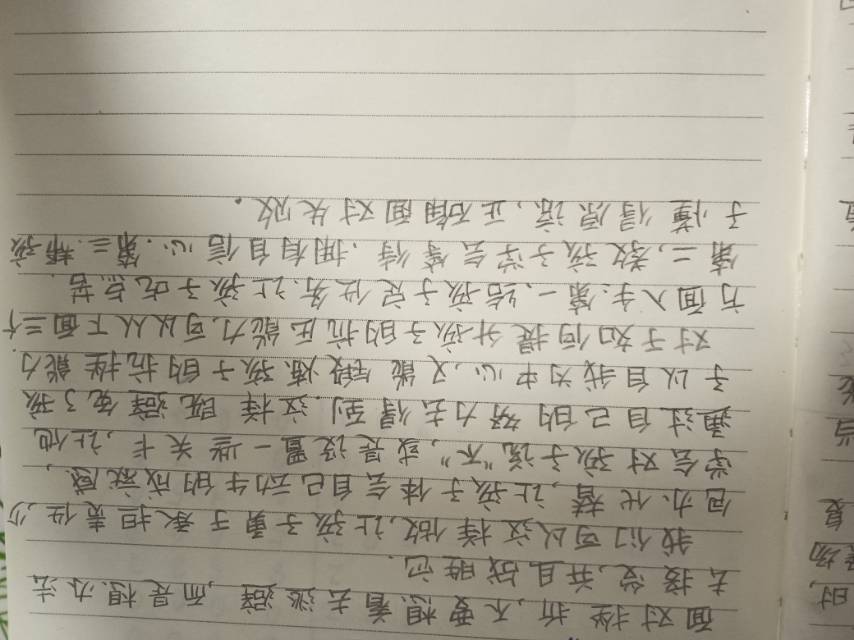 面对挫折,不要想着去逃避,而是想办法
去接受,并且战胜它.
我们可以这样做,让孩子勇于承担责任,少
包办代替,让孩子体会自己动手的成就感,
学会对孩子说“不”,或是设置一些关卡,让他
通过自己的努力去得到.这样既避免了孩
子以自我为中心,又能锻炼孩子的抗挫能力.
对于如何提升孩子的抗压能力,可以从下面三个
方面入手.第一,给孩子定任务,让孩子吃点苦.
第二,教孩子学会等待,拥有自信心.第三.帮孩
子懂得原谅,正确面对失败.